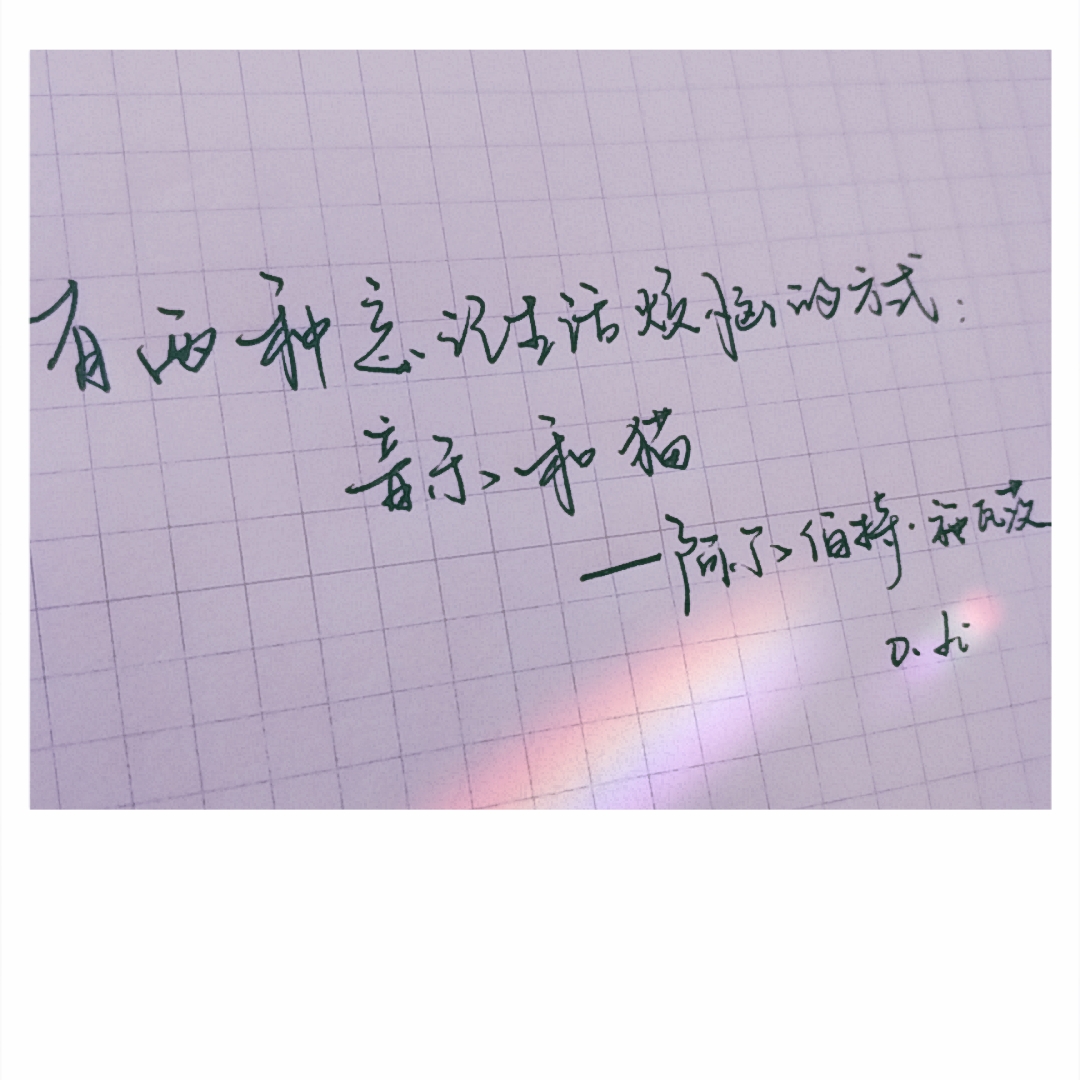 有两种忘记生活烦恼的方式：
音乐和猫
—阿尔伯特·施瓦茨
D. di